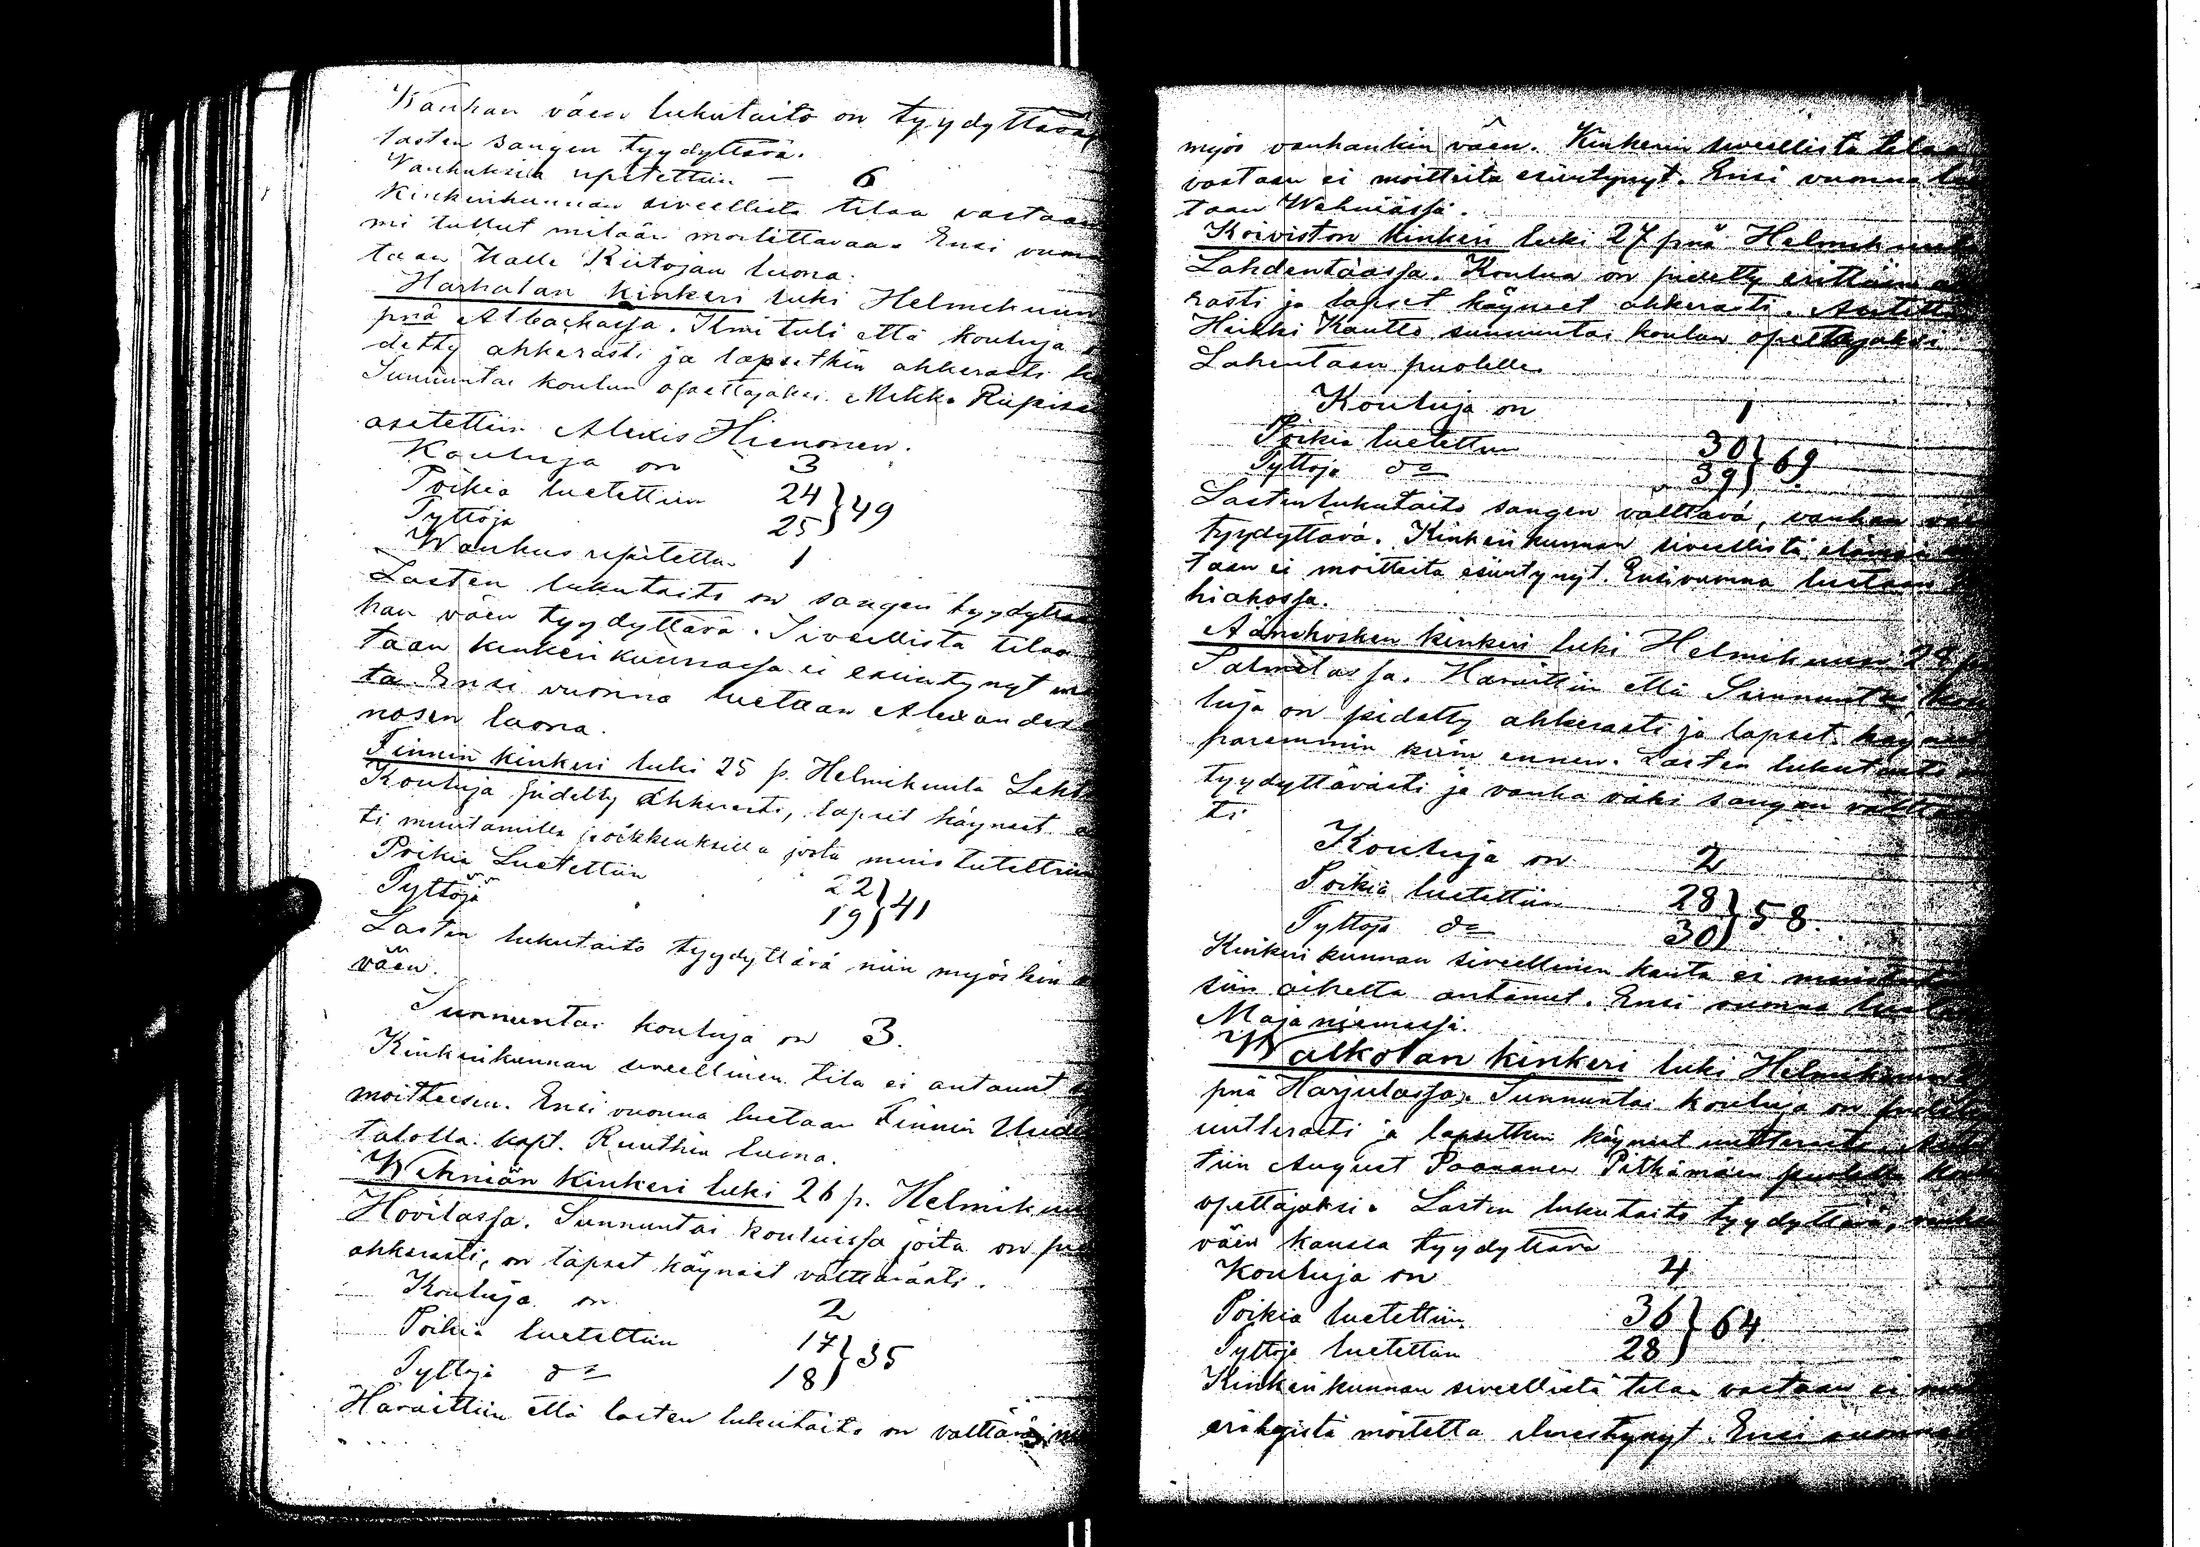 Vanhan väen lukutaito on tyydyttävä
lasten sangen tyydyttävä.
Vanhuksia ripitettiin – 6
Kinkerikunnan siveellistä tilaa vastaan
mi tullut mitään moitittavaa. Ensi vuon
taan Kalle Riitojan luona.
Harhalan kinkeri luki Helmikuun
pnä Albackassa. Ilmi tuli että kouluja
detty ahkerasti ja lapsetkin ahkerasti
Sunnuntai koulun opettajaksi
asetettiin Alexis Hienonen.
Kouluja on 3
Poikia luetettiin 24 } 49
Tyttöja 25
Wanhus ripitettu 1
Lasten lukutaito on sangen tyydyttä
han väen tyydyttävä. Siveellistä tilaa
taan kinkerikunnassa ei esiintynyt
ta. Ensi vuonna luetaan Alexander
nosen luona.
Finnin kinkeri luki 25 p. Helmikuuta
Kouluja pidetty ahkerasti, lapset käyneet
ti muutamilla poikkeuksilla joita muistutettiin
Poikia Luetettiin 22 } 41
Tyttöjä 19
Lasten lukutaito tyydyttävä niin myöskin
väen.
Sunnuntai kouluja on 3.
Kinkerikunnan siveellinen tila ei antanut
moitteesen. Ensi vuonna luetaan Finnin
talolla kapt. Ruuthin luona.
Wehniän kinkeri luki 26 p. Helmikuu
Hovilassa. Sunnuntai kouluissa joita on
ahkerasti, on lapset käyneet välttävästi.
Kouluja on 2
Poikia luetettiin 17 } 35
Tyttöjä d:o 18
Havaittiin että lasten lukutaito on välttävä
myös vanhankin väen. Kinkerin siveellistä tilaa
vastaan ei moitteita esiintynyt. Ensi vuonna
taan Wehniässä.
Koiviston kinkeri luki 27 pnä Helmikuuta
Lahdentaassa. Koulua on pidetty erittäin
rasti ja lapset käyneet ahkerasti. Asetettiin
Heikki Kautto sunnuntai koulun opettajaksi
Lahentaan puolelle.
Kouluja on 1
Poikia luetettiin 30 } 69
Tyttöja d:o 39
Lasten lukutaito sangen välttävä, vanhan
tyydyttävä. Kinkerikunnan siveellistä elämää
taan ei moitteita esiintynyt. Ensi vuonna luetaan
hiahossa.
Äänekosken kinkeri luki Helmikuun 28
Salmelassa. Havaittiin että Sunnuntai kou
luja on pidetty ahkerasti ja lapset käyneet
paremmin kuin ennen. Lasten lukutaito
tyydyttävästi ja vanha väki sangen vältt
ti
Kouluja on 2
Poikia luetettiin 28 } 58.
Tyttöja d:o 30
Kinkerikunnan siveellinen kanta ei muistut
siin aihetta antanut. Ensi vuonna
Majaniemessä.
Walkolan kinkeri luki Helmikuun
pnä Harjulassa. Sunnuntai kouluja on
uutterasti ja lapsetkin käyneet uutterasti.
tiin August Paananen Pitkämäen puolelle
opettajaksi. Lasten lukutaito tyydyttävä,
väen kanssa tyydyttävä
Kouluja on 4
Poikia luetettiin 36 } 64
Tyttöja luetettiin 28
Kinkerikunnan siveellistä tilaa vastaan ei
moitetta ilmestynyt. Ensi vuonna